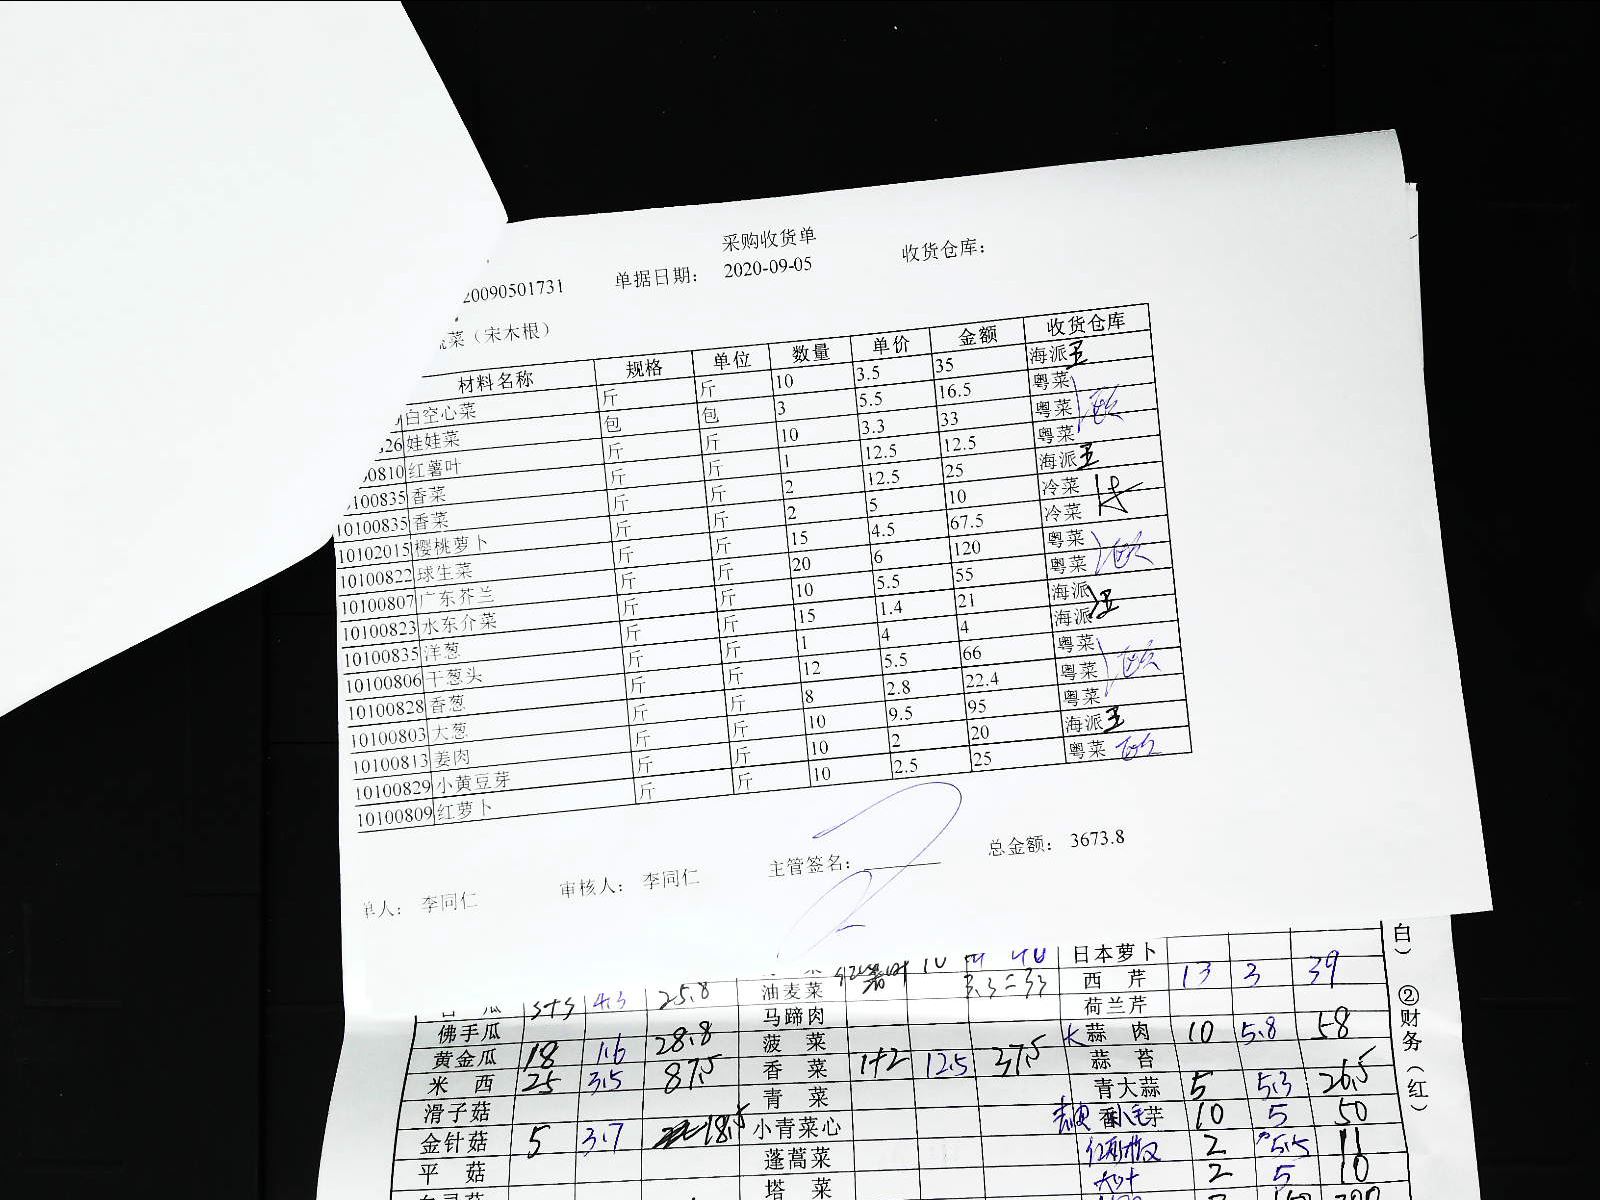 采购收货单
20090501731 单据日期: 2020-09-05 收货仓库:
菜（宋木根）
材料名称 规格 单位 数量 单价 金额 收货仓库
白空心菜 斤 斤 10 3.5 35 海派 王
26 娃娃菜 包 包 3 5.5 16.5 粤菜
0810 红薯叶 斤 斤 10 3.3 33 粤菜
100835 香菜 斤 斤 1 12.5 12.5 粤菜
10100835 香菜 斤 斤 2 12.5 25 海派 王
10102015 樱桃萝卜 斤 斤 2 5 10 冷菜
10100822 球生菜 斤 斤 15 4.5 67.5 冷菜
10100807 广东芥兰 斤 斤 20 6 120 粤菜
10100823 水东介菜 斤 斤 10 5.5 55 粤菜
10100835 洋葱 斤 斤 15 1.4 21 海派
10100806 干葱头 斤 斤 1 4 4 海派 王
10100828 香葱 斤 斤 12 5.5 66 粤菜
10100803 大葱 斤 斤 8 2.8 22.4 粤菜
10100813 姜肉 斤 斤 10 9.5 95 粤菜
10100829 小黄豆芽 斤 斤 10 2 20 海派 王
10100809 红萝卜 斤 斤 10 2.5 25 粤菜
单人: 李同仁 审核人: 李同仁 主管签名: 总金额: 3673.8
日本萝卜
瓜 4.3 25.8 油麦菜 西芹 13 3 39
佛手瓜 马蹄肉 荷兰芹
黄金瓜 18 1.6 28.8 菠菜 蒜肉 10 5.8 58
米西 25 3.5 87.5 香菜 1+2 12.5 37.5 蒜苔
滑子菇 青菜 青大蒜 5 5.3 26.5
金针菇 5 3.7 18.5 小青菜心 10 5 50
平菇 蓬蒿菜 2 5.5 11
塔菜 2 5 10
白）
②财务（红）